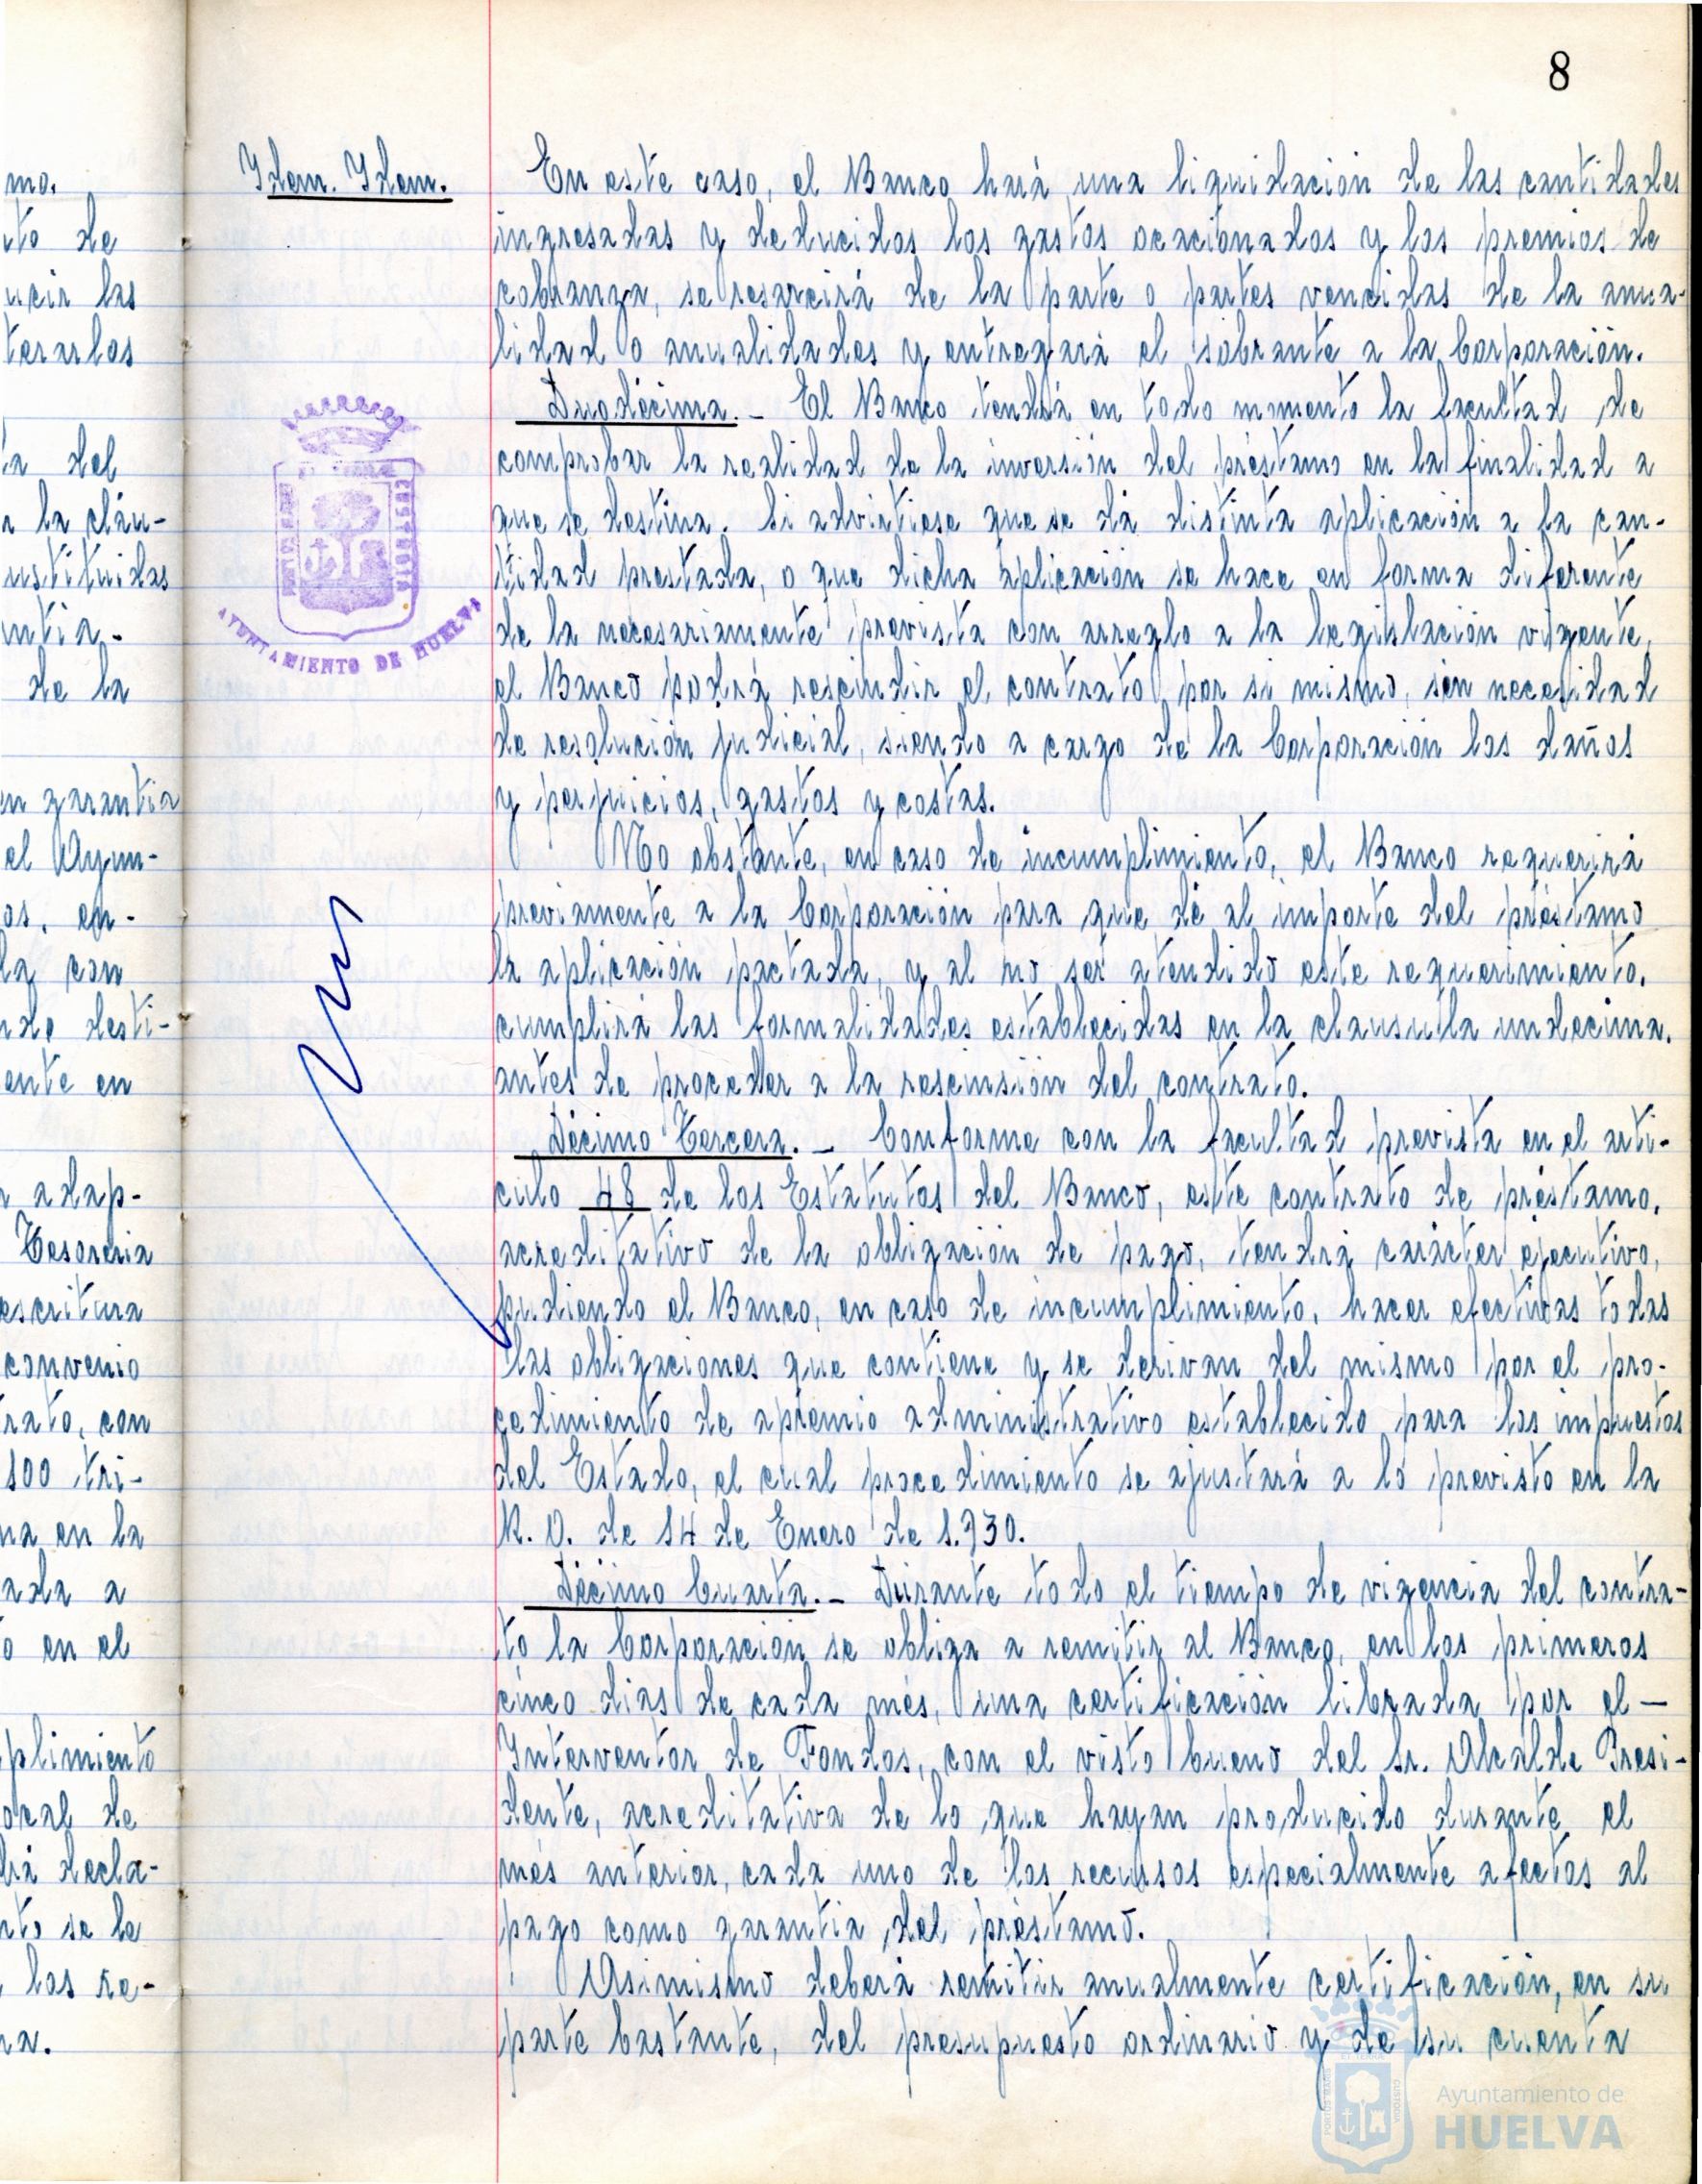 8
mo.
ito de
ucir las
terarlos
la del
a la cláu-
ustituidas
ntia.-
de la
en garantia
el Ayun-
os, en-
la con
nde desti-
ente en
a adap-
Tesoreria
escritura
convenio
rato, con
100 tri-
na en la
ada a
o en el
plimiento
ocal de
drá decla-
nto se le
, los re-
ra.
Idem. Idem.
AYUNTAMIENTO DE HUELVA
En este caso, el Banco hará una liquidación de las cantidades
ingresadas y deducidos los gastos ocacionados y los premios de
cobranza, se resarcirá de la parte o partes vencidas de la anua-
lidad o anualidades y entregará el sobrante a la Corporación.
Duodécima.- El Banco tendrá en todo momento la facultad de
comprobar la realidad de la inversión del préstamo en la finalidad a
que se destina. Si advirtiese que se dá distinta aplicación a la can-
tidad prestada, o que dicha aplicación se hace en forma diferente
de la necesariamente prevista con arreglo a la legislación vigente,
el Banco podrá rescindir el contrato por si mismo, sin necesidad
de resolución judicial, siendo a cargo de la Corporación los daños
y perjuicios, gastos y costas.
No obstante, en caso de incumplimiento, el Banco requerirá
previamente a la Corporación para que dé al importe del préstamo
la aplicación pactada, y al no ser atendido este requerimiento,
cumplirá las formalidades establecidas en la clausulla undecima,
antes de proceder a la rescinsión del contrato.
Décimo Tercera.- Conforme con la facultad prevista en el arti-
culo 48 de los Estatutos del Banco, este contrato de préstamo,
acreditativo de la obligación de pago, tendrá carácter ejecutivo,
pudiendo el Banco, en caso de incumplimiento, hacer efectivas todas
las obligaciones que contiene y se derivan del mismo por el pro-
cedimiento de apremio administrativo establecido para los impuestos
del Estado, el cual procedimiento se ajustará a lo previsto en la
R. O. de 14 de Enero de 1.930.
Décimo Cuarta.- Durante todo el tiempo de vigencia del contra-
to la Corporación se obliga a remitir al Banco, en los primeros
cinco dias de cada més, una certificación librada por el -
Interventor de Fondos, con el visto bueno del Sr. Alcalde Presi-
dente, acreditativa de lo que hayan producido durante el
més anterior, cada uno de los recursos especialmente afectos al
pago como garantia del préstamo.
Asimismo deberá remitir anualmente certificación, en su
parte bastante, del presupuesto ordinario y de su cuenta
Ayuntamiento de
HUELVA